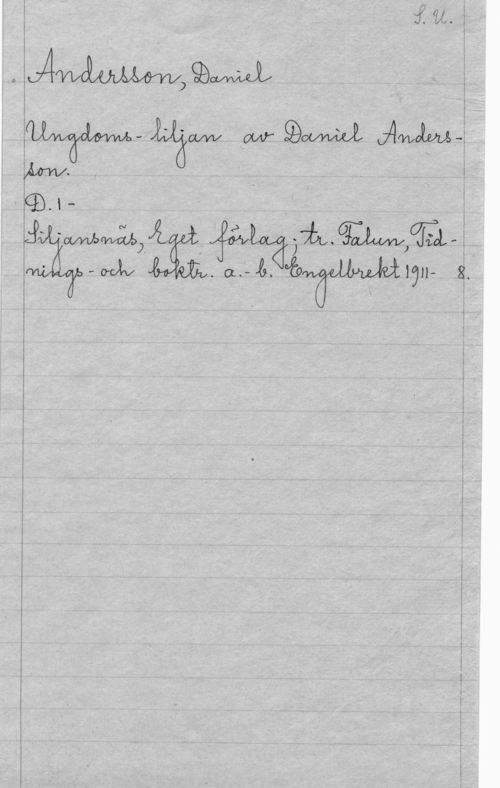 S. U.
Andersson, Daniel
Ungdoms-liljan av Daniel Anders-
son.
D. 1-
Siljansnäs, Eget förlag; tr. Falun, Tid-
nings- och boktr. a.-b. Engelbrekt 1911- 8.